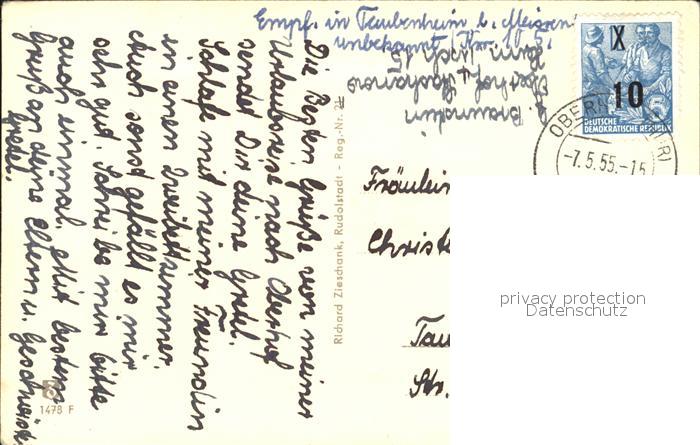 Empf. in Taubenheim b. Meissen
unbekannt
Die Besten Grüße von meiner
Urlaubsreise nach Oberhof
sendet Dir deine Gretel.
Schlafe mit meiner Freundin
in einen Zweibettzimmer.
Auch sonst gefällt es mir
sehr gut. Schreibe mir bitte
auch einmal. Mit besten
Gruß an deine Eltern u. Geschwister
Gretel.
Richard Zieschank, Rudolstadt - Reg.-Nr.
1478 F
X
10
DEUTSCHE
DEMOKRATISCHE REPUBLIK
OBERH
-7.5.55.-15
Fräulein
Christ
Tau
Str.
privacy protection
Datenschutz